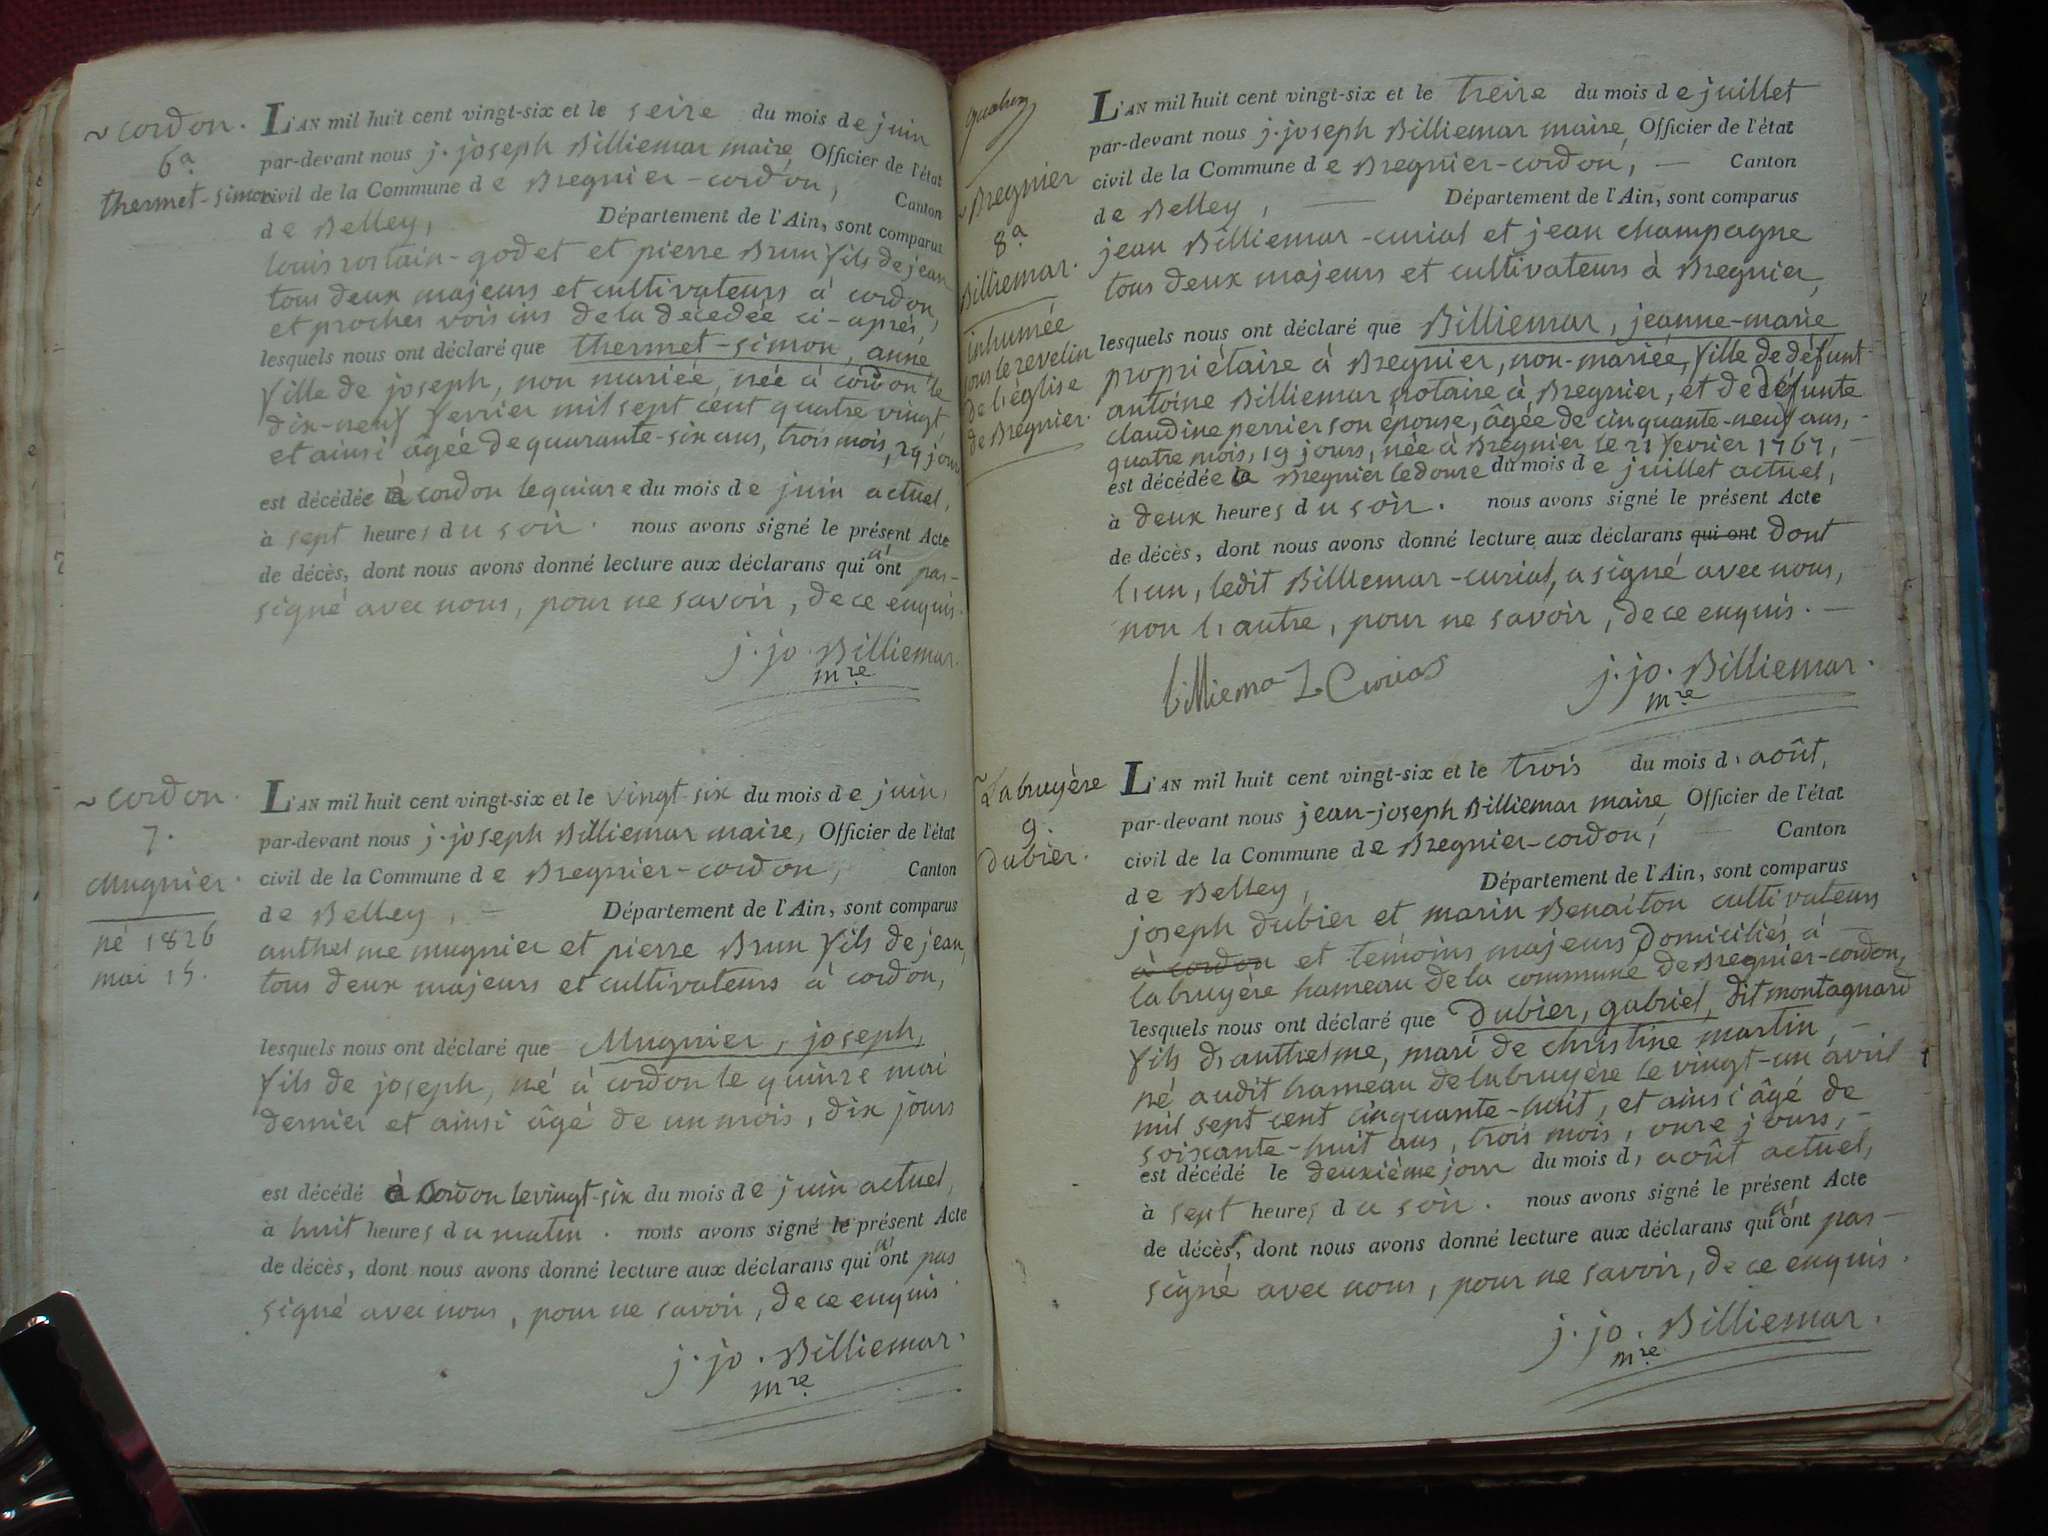 ~ cordon.
6ª
thermet-simon
L'AN mil huit cent vingt-six et le seize du mois de juin
par-devant nous j. joseph Billiemar maire Officier de l'état
civil de la Commune de Bregnier-cordon, Canton
de Belley, Département de l'Ain, sont comparus
louis rostain-godet et pierre Brun fils de jean
tous deux majeurs et cultivateurs à cordon,
et proches voisins de la décédée ci-après,
lesquels nous ont déclaré que thermet-simon, anne
fille de joseph, non mariée, née à cordon le
dix-neuf fevrier mil sept cent quatre vingt
et ainsi âgée de quarante-six ans, trois mois, 29 jours
est décédée à cordon le quinze du mois de juin actuel,
à sept heures du soir. nous avons signé le présent Acte
de décès, dont nous avons donné lecture aux déclarans qui n'ont pas-
signé avec nous, pour ne savoir, de ce enquis.
j. jo. Billiemar.
mre
~ cordon.
7.
Mugnier.
né 1826
mai 15.
L'AN mil huit cent vingt-six et le vingt-six du mois de juin,
par-devant nous j. joseph Billiemar maire, Officier de l'état
civil de la Commune de Bregnier-cordon, Canton
de Belley, — Département de l'Ain, sont comparus
anthelme mugnier et pierre Brun fils de jean,
tous deux majeurs et cultivateurs à cordon,
lesquels nous ont déclaré que Mugnier, joseph,
fils de joseph, né à cordon le quinze mai
dernier et ainsi âgé de un mois, dix jours
est décédé à cordon le vingt-six du mois de juin actuel,
à huit heures du matin. nous avons signé le présent Acte
de décès, dont nous avons donné lecture aux déclarans qui n'ont pas
signé avec nous, pour ne savoir, de ce enquis
j. jo. Billiemar.
mre
~ Bregnier
8ª
Billiemar.
inhumée
sous le revelin
de l'église
de Bregnier.
L'AN mil huit cent vingt-six et le treize du mois de juillet
par-devant nous j. joseph Billiemar maire, Officier de l'état
civil de la Commune de Bregnier-cordon, — Canton
de Belley, — Département de l'Ain, sont comparus
jean Billiemar-curial et jean champagne
tous deux majeurs et cultivateurs à Bregnier,
lesquels nous ont déclaré que Billiemar, jeanne-marie
propriétaire à Bregnier, non-mariée, fille de défunt
antoine Billiemar notaire à Bregnier, et de défunte
claudine perrier son épouse, âgée de cinquante-neuf ans,
quatre mois, 19 jours, née à Bregnier le 21 fevrier 1767, —
est décédée à Bregnier le douze du mois de juillet actuel,
à deux heures du soir. nous avons signé le présent Acte
de décès, dont nous avons donné lecture aux déclarans qui ont dont
l'un, ledit Billiemar-curial, a signé avec nous,
non l'autre, pour ne savoir, de ce enquis. —
j. jo. Billiemar.
mre
~ Labruyère
9.
Dubier.
L'AN mil huit cent vingt-six et le trois du mois d'août,
par-devant nous jean-joseph Billiemar maire Officier de l'état
civil de la Commune de Bregnier-cordon, Canton
de Belley, Département de l'Ain, sont comparus
joseph Dubier et marin Benaiton cultivateurs
à cordon et témoins majeurs domiciliés à —
labruyère hameau de la commune de Bregnier-cordon,
lesquels nous ont déclaré que Dubier, gabriel, dit montagnard
fils d'anthelme, mari de christine martin, —
né audit hameau de labruyère le vingt-un avril
mil sept cent cinquante-huit, et ainsi âgé de
soixante-huit ans, trois mois, onze jours, —
est décédé le deuxième jour du mois d'août actuel,
à sept heures du soir. nous avons signé le présent Acte
de décès, dont nous avons donné lecture aux déclarans qui n'ont pas —
signé avec nous, pour ne savoir, de ce enquis.
j. jo. Billiemar.
mre